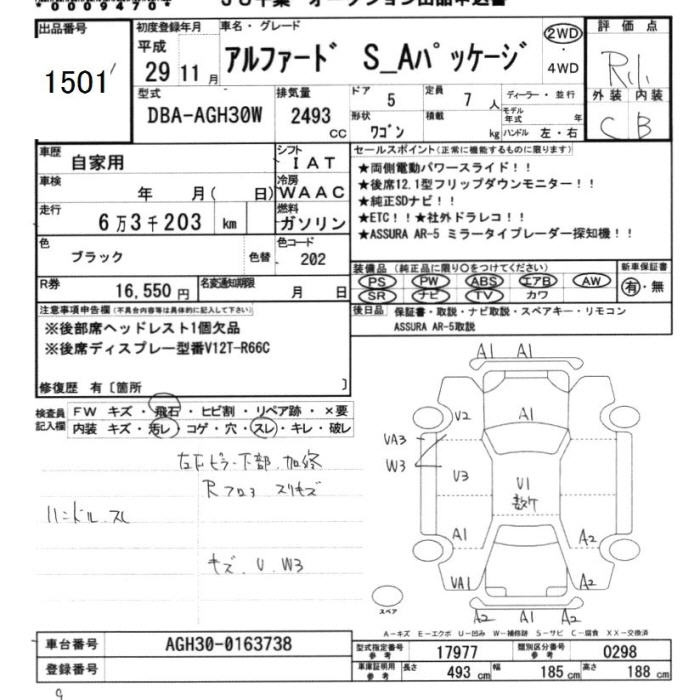 出品番号
1501
初度登録年月
平成
29 11 月
車名・グレード
アルファード S_Aパッケージ
2WD
・
4WD
評価点
R1
外装 内装
C B
型式
DBA-AGH30W
排気量
2493
cc
ドア
5
定員
7 人
形状
ワゴン
積載
kg
ディーラー・並行
モデル年式 年
ハンドル 左・右
車歴
自家用
シフト
IAT
車検
年 月( 日)
冷房
WAAC
走行
6万3千203 km
燃料
ガソリン
色
ブラック
色替
色コード
202
R券
16,550円
名変通知期限
月 日
セールスポイント(正常に機能するものに限ります)
★両側電動パワースライド!!
★後席12.1型フリップダウンモニター!!
★純正SDナビ!!
★ETC!!★社外ドラレコ!!
★ASSURA AR-5 ミラータイプレーダー探知機!!
装備品 (純正品に限り○をつけてください)
PS PW ABS エアB AW
SR ナビ TV カワ
新車保証書
有・無
後日品
保証書・取説・ナビ取説・スペアキー・リモコン
ASSURA AR-5取説
注意事項申告欄(不具合内容等は具体的に記入して下さい)
※後部席ヘッドレスト1個欠品
※後席ディスプレー型番V12T-R66C
修復歴 有〔箇所 〕
検査員記入欄
FW キズ・飛石・ヒビ割・リペア跡・×要
内装 キズ・汚レ・コゲ・穴・スレ・キレ・破レ
左Fピラー下部 加修
Rフロア スリキズ
ハンドル スレ
キズ、U、W3
A1 A1
V2
A1
VA3
W3
V3
U1
A1
A2
VA1
A2
A2 A1 A2
スペア
A-キズ E-エクボ U-凹み W-補修跡 S-サビ C-腐食 XX-交換済
車台番号
AGH30-0163738
登録番号
型式指定番号
参考
17977
類別区分番号
参考
0298
車庫証明用
参考
長さ
493 cm
幅
185 cm
高さ
188 cm